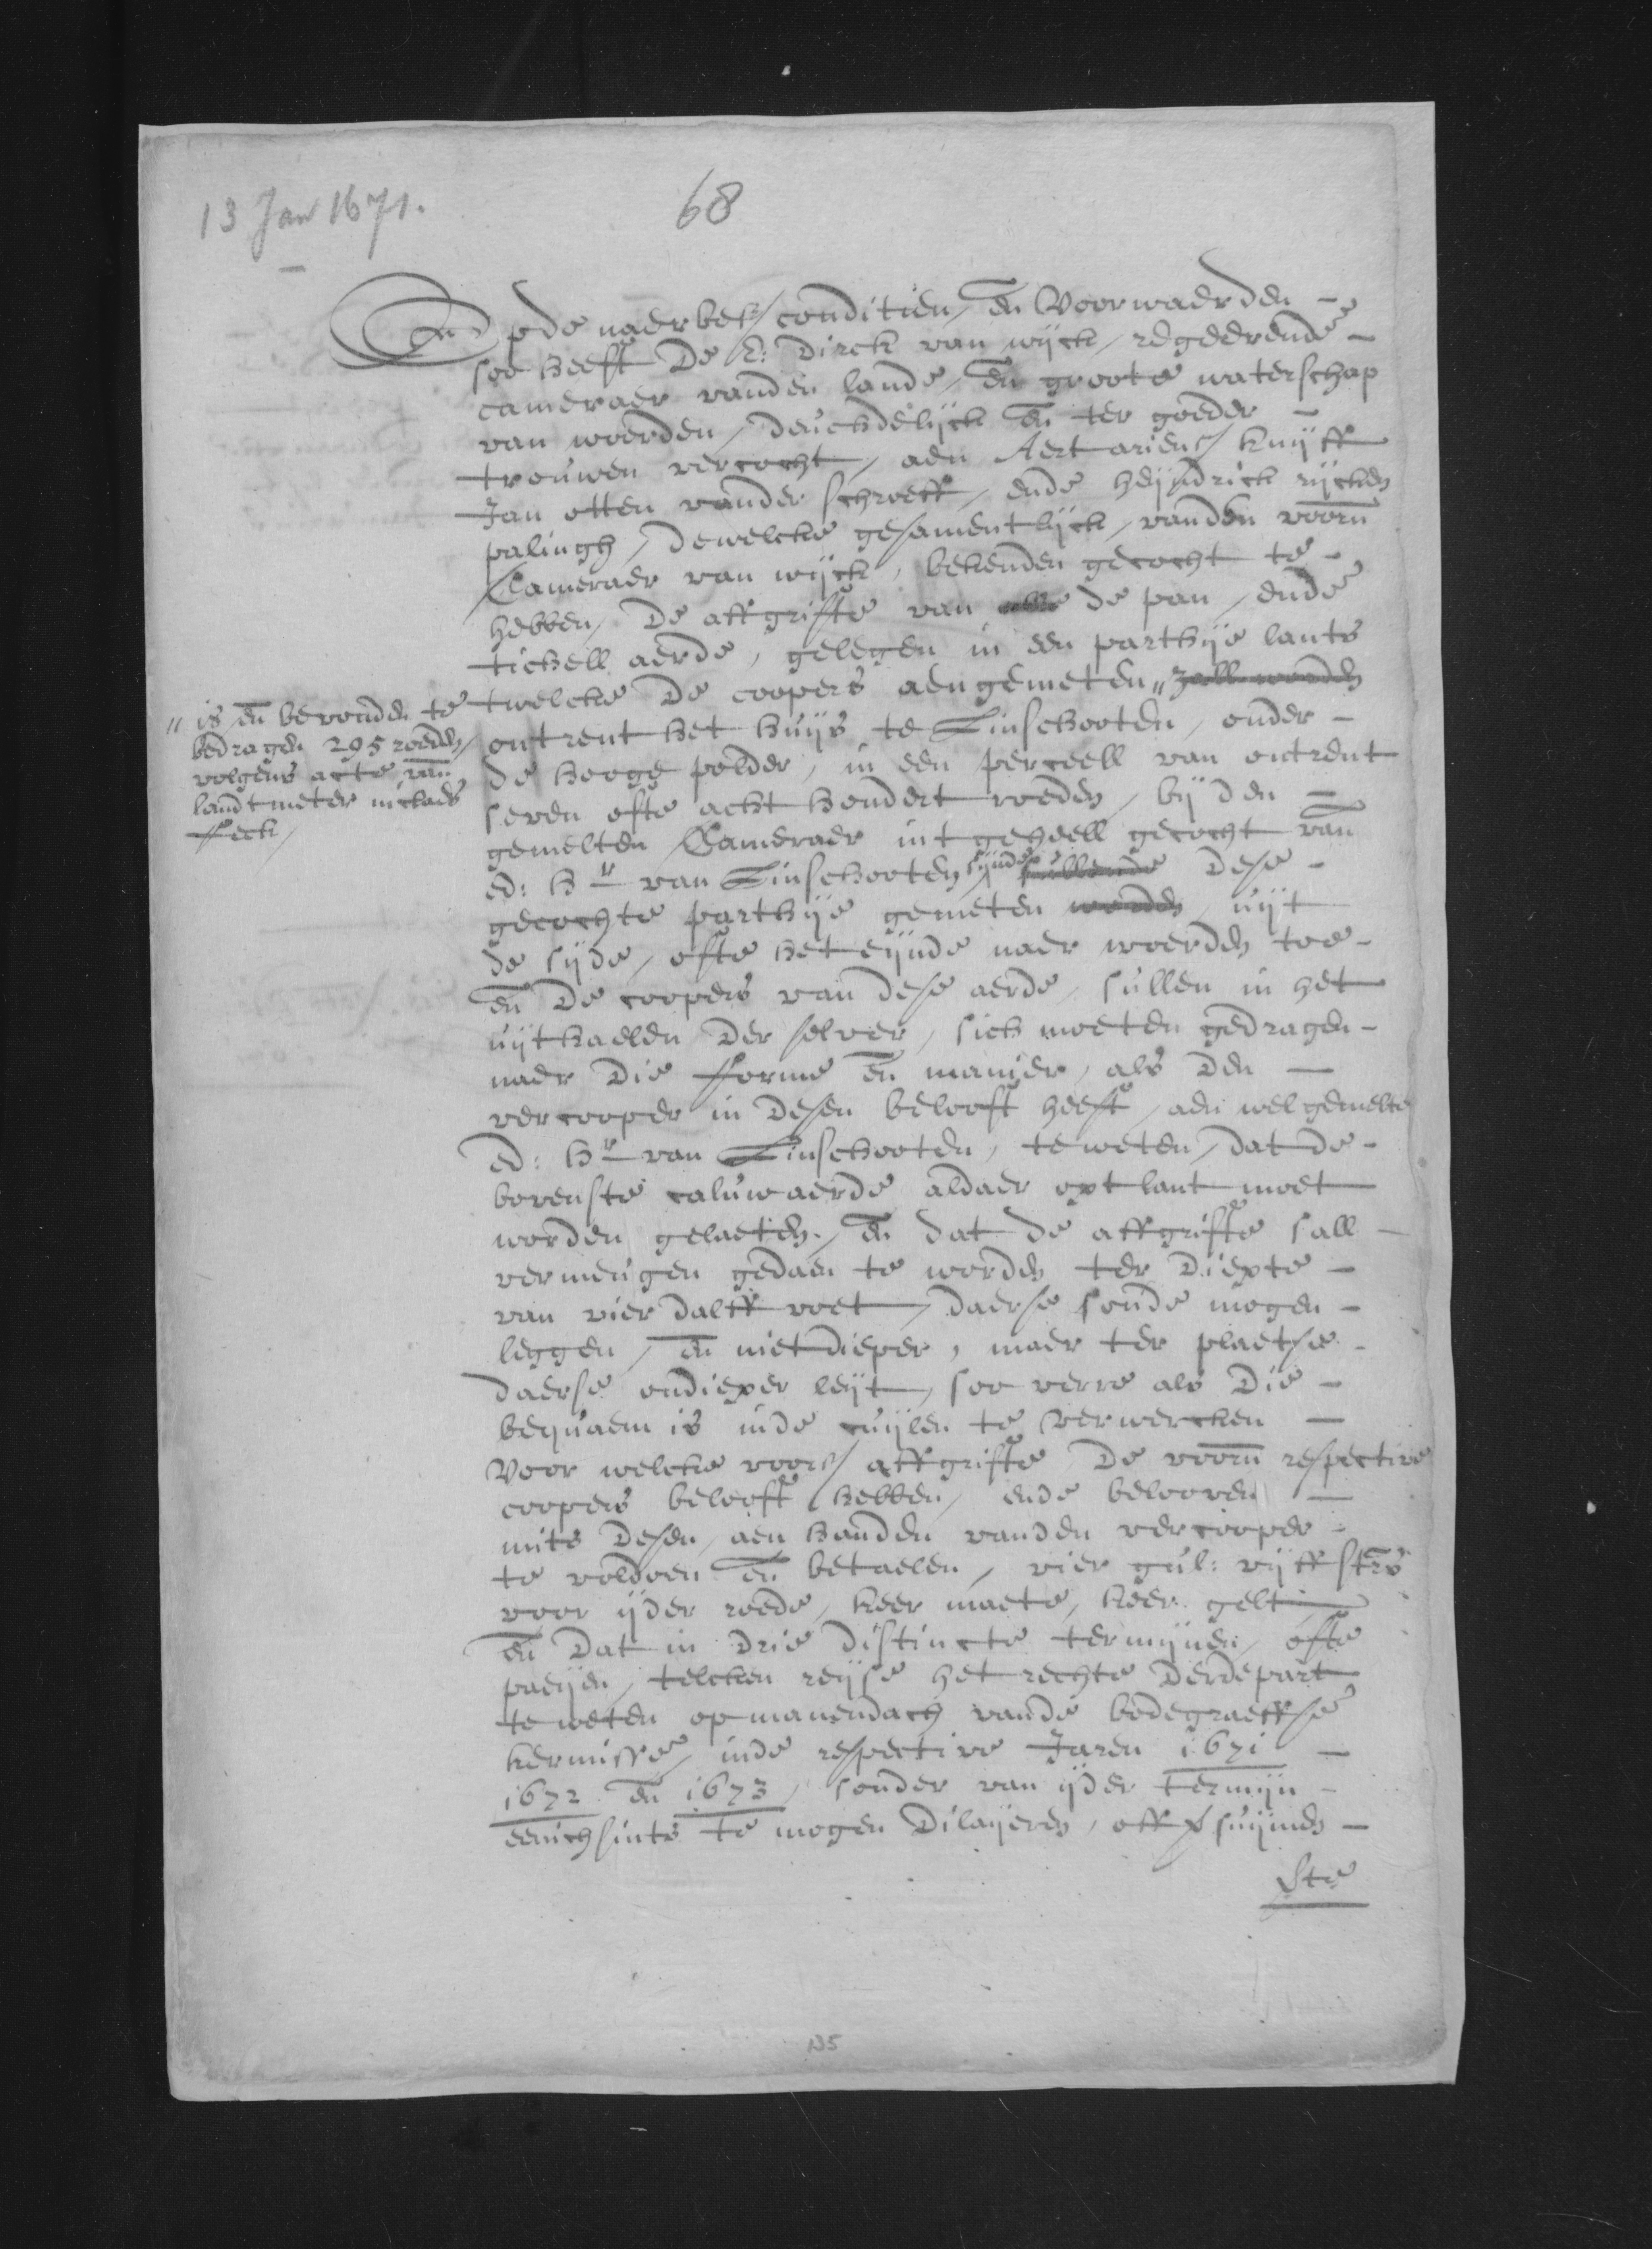 13 Jan 1671.
68
Opde naerbes/ conditien, en Voorwaerden -
soo heeft De E: Dirck van wijck, regeerende -
cameraer vanden lande, en groote waterschap
van woerden, deuchdelijck en ter goeder -
trouwen vercocht, aen Aert ariens/ knijff
Jan otten vander schroeff, ende heijndrick rijcken
palingh, dewelcke gesamentlijck, vanden voorn
Cameraer van wijck, bekenden gecocht te -
hebben, De affgrifte van de pan, ende
tichell aerde, gelegen in een parthije lants
twelcke De coopers aengemeten " zall worden
" is en bevonden te
bedragen 295 roeden,
volgens acte van
landtmeter niclaes
feck,
ontrent het huijs te Linschooten, onder -
de hooge polder, in een perceell van ontrent
seven ofte acht hondert roeden, bij den -
gemelten Cameraer int geheell gecocht van
ed: hr van Linschooten, sijnde sullende dese -
gecochte parthije gemeten worden, uijt
de sijde, ofte het eijnde naer woerden toe -
en De coopers van dese aerde, sullen in het
uijthaelen der selver, sich moeten gedragen -
naer Die forme en manier, als Den -
vercooper in Desen belooft heeft, aen welgemelte
ed: hr van Linschooten, te weten, dat de -
bovenste caluwaerde aldaer opt lant moet
worden gelaeten, en dat de affgrifte sall -
vermeugen gedaen te worden ter Diepte -
van vierdalff voet, daerse soude mogen -
leggen, en niet dieper, maer ter plaetse -
daerse ondieper leijt, soo verre als Die -
bequaem is inde cuijlen te verwercken -
Voor welcke voors/ affgrifte De voorn respective
coopers belooft hebben, ende belooven -
mits Desen, aen handen vanden vercooper
te voldoen en betaelen, vier gul: vijff stvrs
voor ijder roede, keer maete, keer gelt,
en Dat in Drie distincte termijnen, ofte
paeijen, telcken reijse het rechte Derdepart
te weten op maenendach vande bodegraeffse
kermisse, inde respective Jaren 1671 -
1672 en 1673, sonder van ijder termijn -
eenichsints te mogen Dilaijeren, off suijmen -
Ste
135